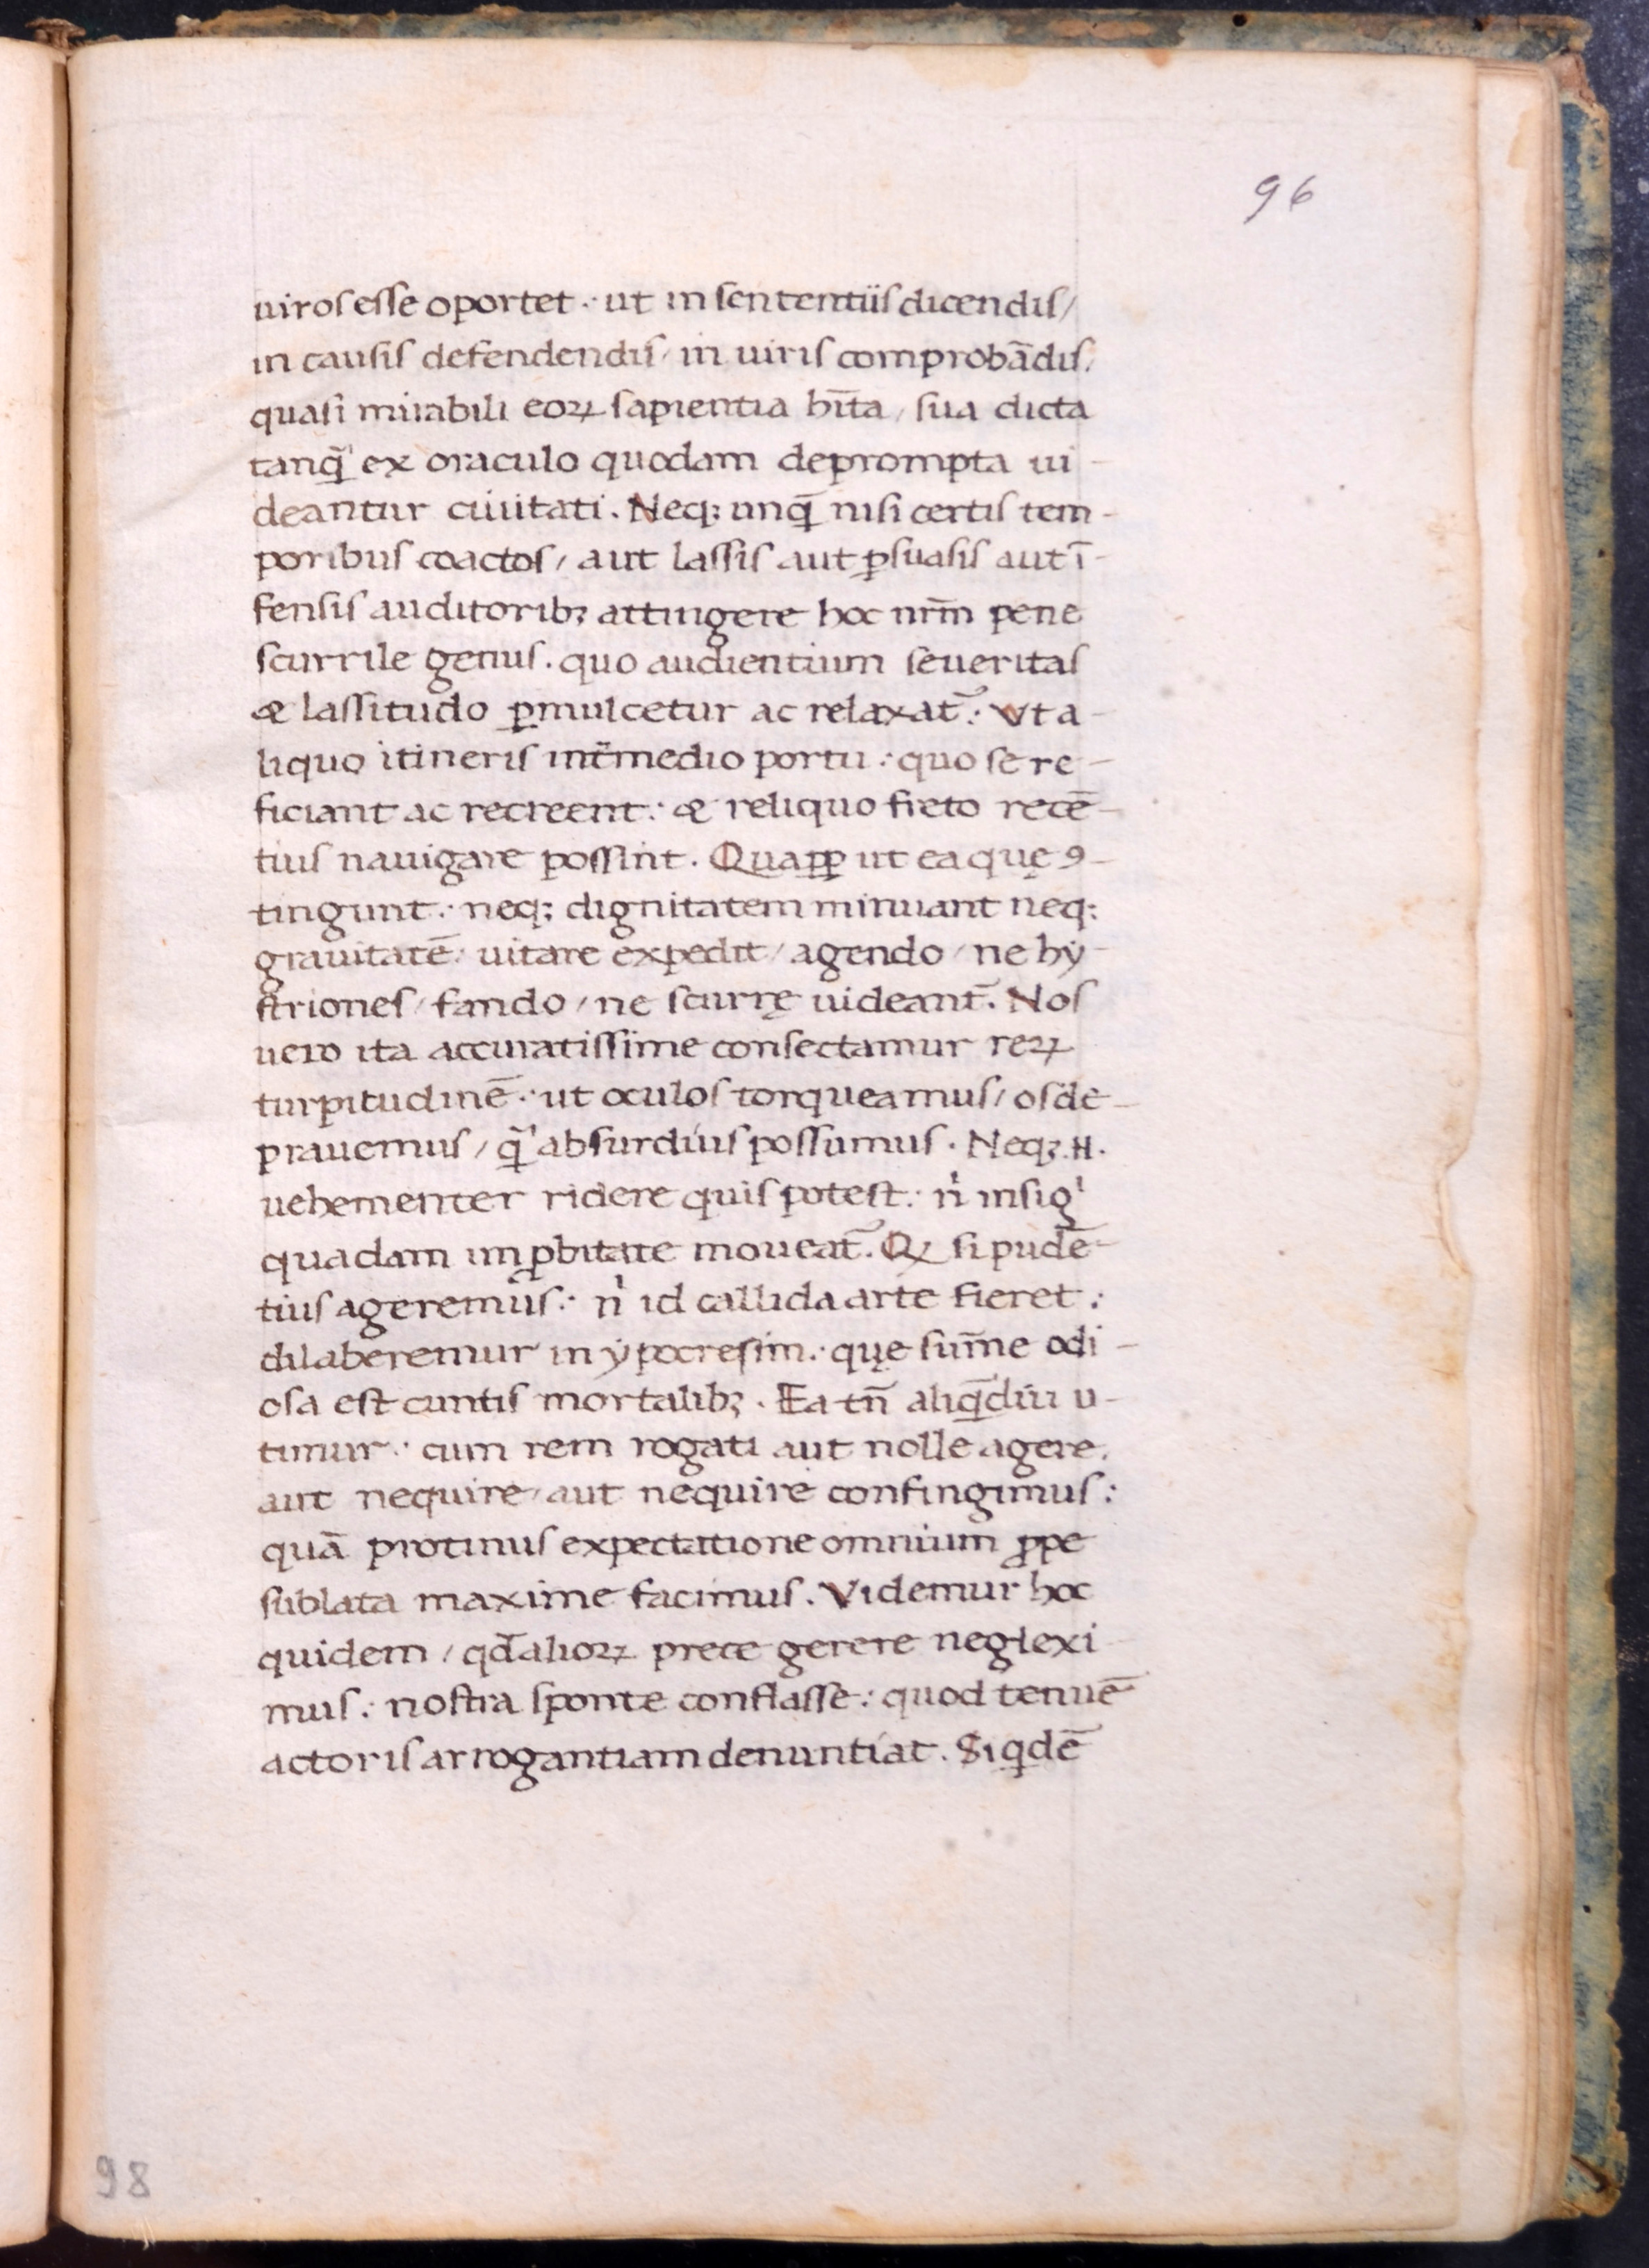 96
uiros esse oportet: ut in sententiis dicendis/
in causis defendendis/ in uiris comprobādis/
quasi mirabili eoꝝ sapientia hīta/ sua dicta
tanq̃ ex oraculo quodam deprompta ui-
deantur ciuitati. Neqꝫ unq̃ nisi certis tem-
poribus coactos/ aut lassis aut ꝑsuasis aut ī-
fensis auditoribꝫ attingere hoc nr̄m pene
scurrile genus. quo audientium seueritas
& lassitudo ꝑmulcetur ac relaxat᷑: Vt a-
liquo itineris int̄medio portu: quo se re-
ficiant ac recreent: & reliquo freto recē-
tius nauigare possint. Quaꝓꝑ ut ea quę ꝯ-
tingunt: neqꝫ dignitatem minuant neqꝫ
grauitatē/ uitare expedit/ agendo/ ne hẏ-
striones/ fando/ ne scurrę uideant᷑. Nos
uero ita accuratissime consectamur reꝝ
turpitudinē: ut oculos torqueamus/ os de-
prauemus/ q̃ absurdius possumus. Neqꝫ .n̄.
uehementer ridere quis potest: nͥ insigͥ
quadam imꝓbitate moueat᷑. Qꝫ si pudē-
tius ageremus: nͥ id callida arte fieret:
dilaberemur in ẏpocresim: quę sum̄e odi-
osa est cuntis mortalibꝫ. Ea tn̄ aliq̄diu u-
timur: cum rem rogati aut nolle agere/
aut nequire/ aut nequire confingimus:
quā protinus expectatione omnium ꝓpe
sublata maxime facimus. Videmur hoc
quidem/ qd̄ alioꝝ prece gerere neglexi
mus: nostra sponte conflasse: quod tenuē
actoris arrogantiam denuntiat. Siqͥdē
98